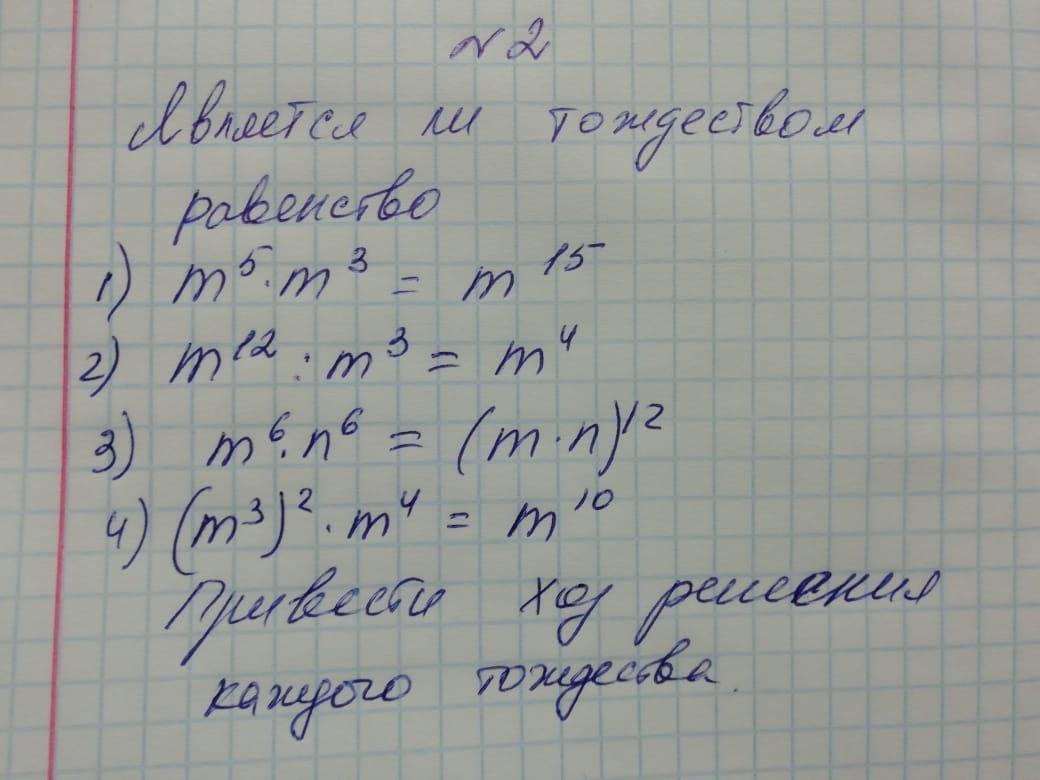 №2
Является ли тождеством
равенство
1) m⁵·m³ = m¹⁵
2) m¹² : m³ = m⁴
3) m⁶·n⁶ = (m·n)¹²
4) (m³)²·m⁴ = m¹⁰
Привести ход решения
каждого тождества.